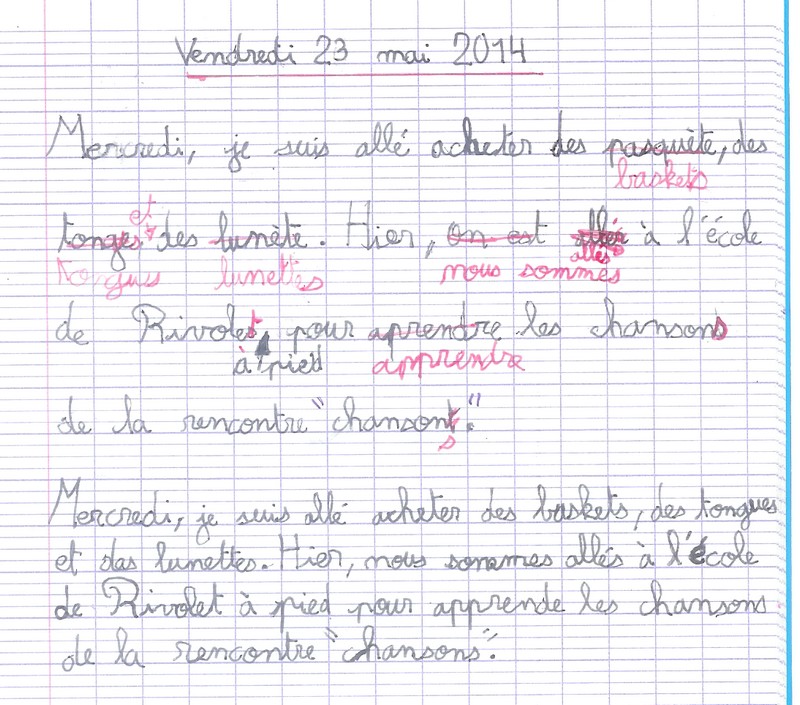 Vendredi 23 mai 2014
Mercredi, je suis allé acheter des pasquète, des
baskets
et
tonges des lunète. Hier, on est allér à l'école
allés
tongues lunettes nous sommes
de Rivolet, pour aprendre les chansons
à pied apprendre
de la rencontre "chansont".
s
Mercredi, je suis allé acheter des baskets, des tongues
et das lunettes. Hier, nous sommes allés à l'école
de Rivolet à pied pour apprende les chansons
de la rencontre "chansons".